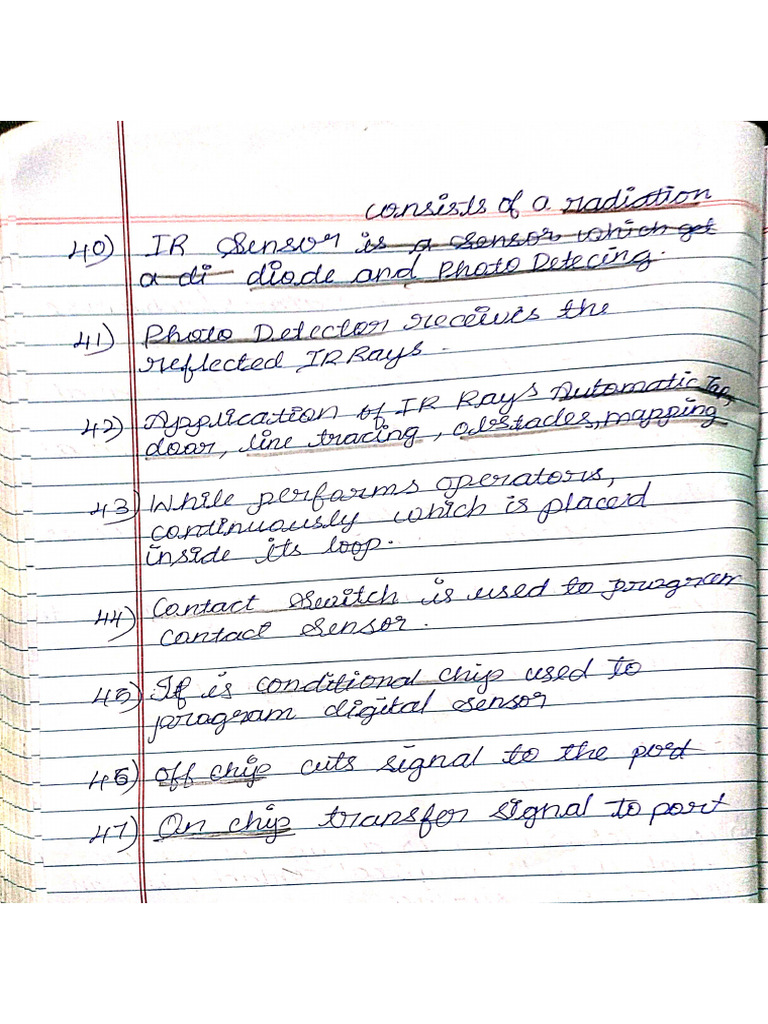 consists of a radiation
40) IR Sensor is a sensor which get
a di diode and Photo Detecing.
41) Photo Detector receives the
reflected IR Rays.
42) Application of IR Rays Automatic Tap,
door, line tracing, obstacles, mapping
43) While performs operators,
continuously which is placed
inside its loop.
44) Contact Switch is used to program
contact sensor.
45) If is conditional chip used to
program digital sensor
46) off chip cuts signal to the port
47) On chip transfer signal to port